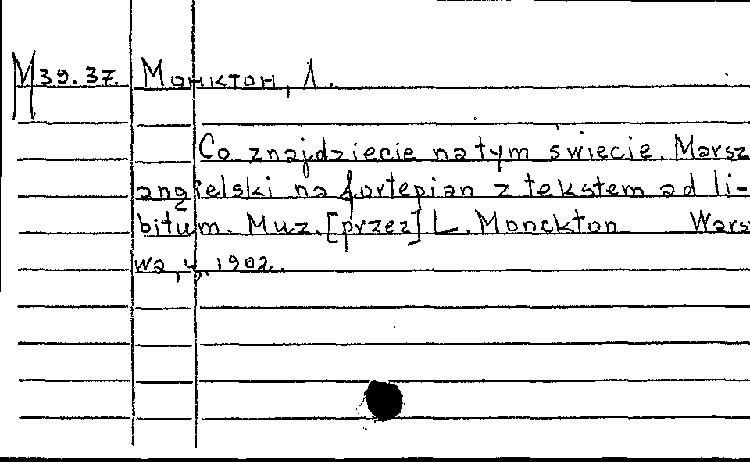 М39.37. Монктон, Л.
Co znajdziecie na tym świecie. Marsz
angielski na fortepian z tekstem ad li-
bitum. Muz. [przez] L. Monckton Wars
wa, 1902.